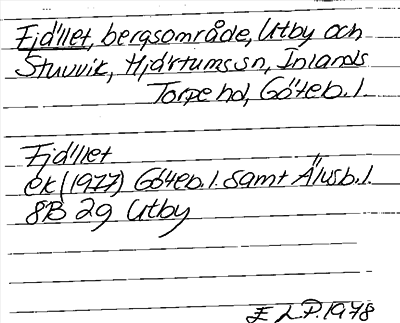 Fjället, bergsområde, Utby och
Stuvvik, Hjärtums sn, Inlands
Torpe hd, Göteb. l.
Fjället
ek (1977) Göteb. l. samt Älvsb. l.
8B 2g Utby
E LP. 1978